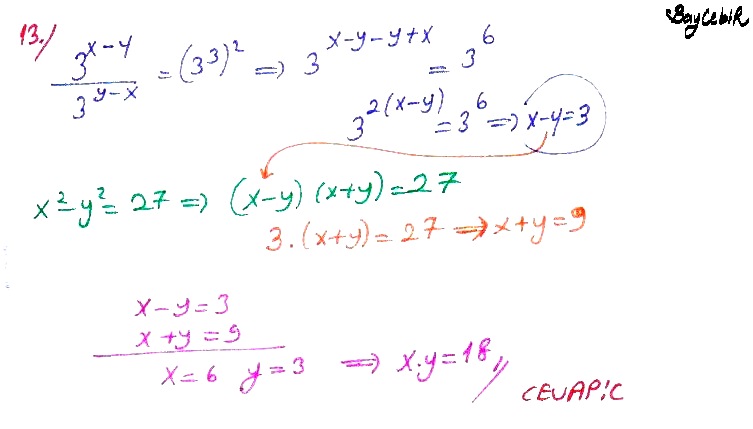 BayCebiR
13.) 3^(x-y) / 3^(y-x) = (3^3)^2 ⇒ 3^(x-y-y+x) = 3^6
3^(2(x-y)) = 3^6 ⇒ x-y=3
x²-y²=27 ⇒ (x-y)(x+y)=27
3.(x+y)=27 ⇒ x+y=9
x-y=3
x+y=9
x=6 y=3 ⇒ x.y=18//
CEVAP:C